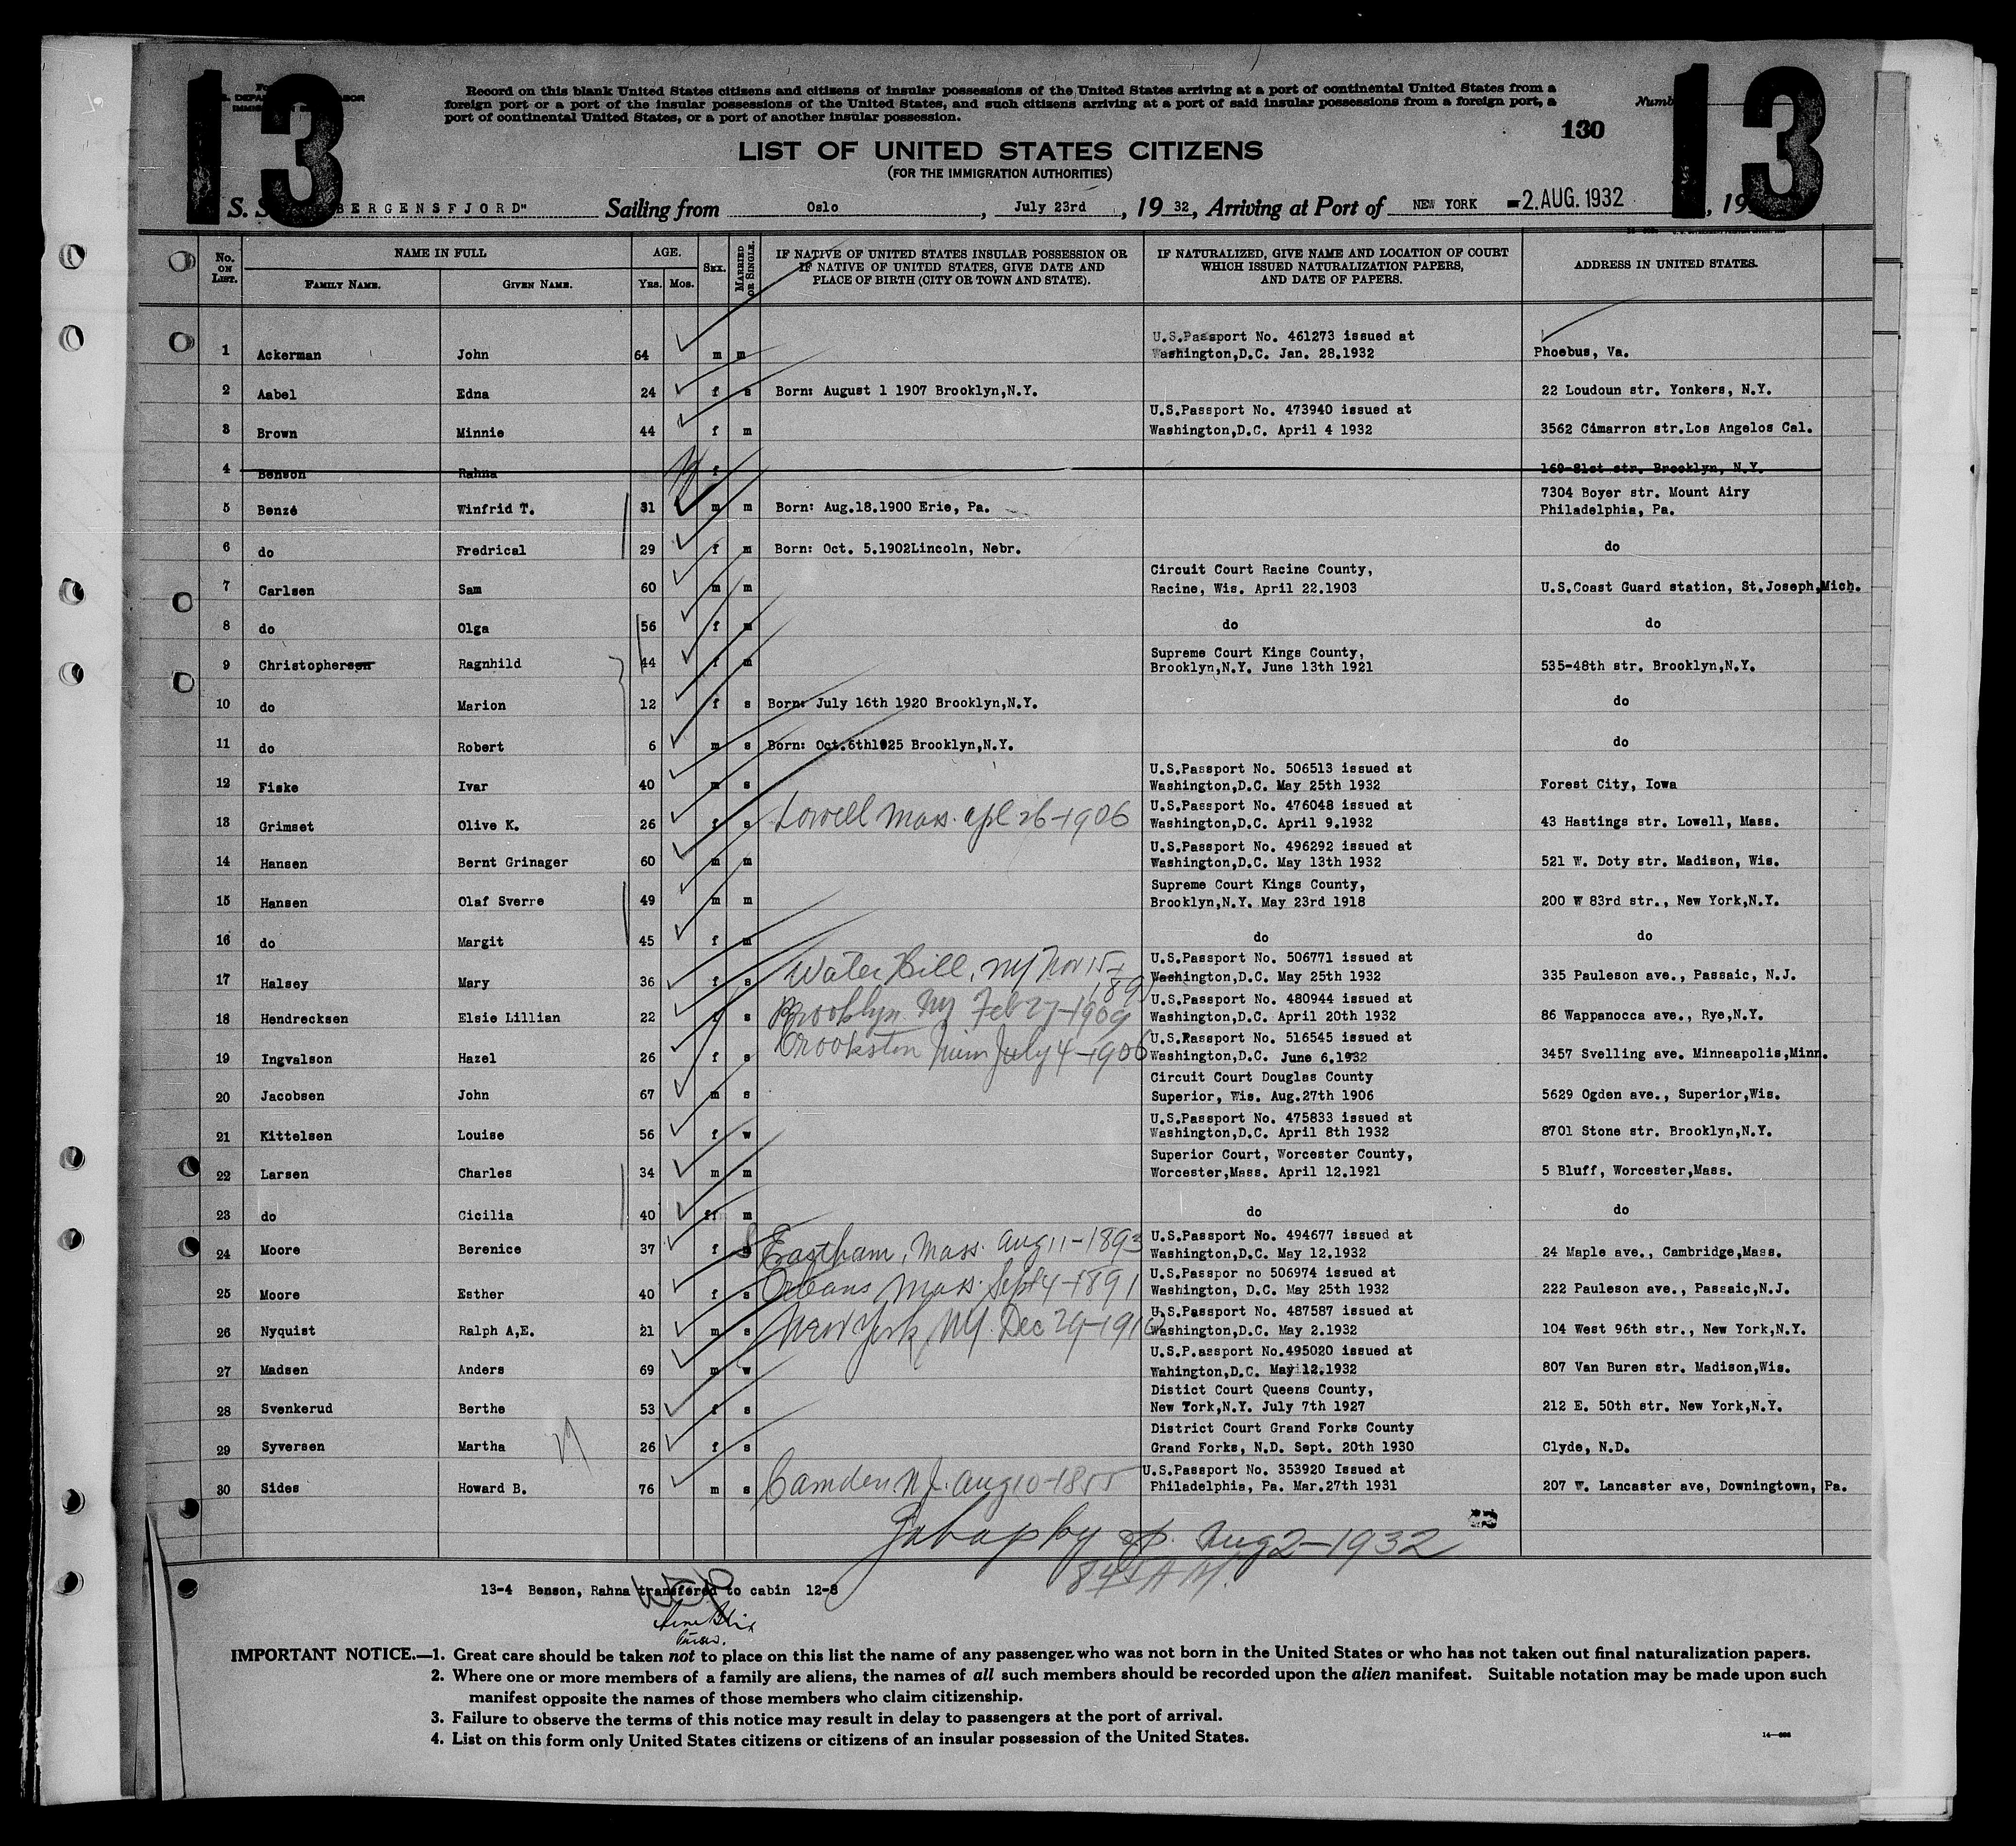 13
13
Record on this blank United States citizens and citizens of insular possessions of the United States arriving at a port of continental United States from a
foreign port or a port of the insular possessions of the United States, and such citizens arriving at a port of said insular possessions from a foreign port, a
port of continental United States, or a port of another insular possession.
130
LIST OF UNITED STATES CITIZENS
(FOR THE IMMIGRATION AUTHORITIES)
S. S. BERGENSFJORD" Sailing from Oslo, July 23rd, 1932, Arriving at Port of NEW YORK -2. AUG. 1932, 19
No. ON LIST. NAME IN FULL FAMILY NAME. GIVEN NAME. AGE. YRS. MOS. SEX. MARRIED OR SINGLE. IF NATIVE OF UNITED STATES INSULAR POSSESSION OR IF NATIVE OF UNITED STATES, GIVE DATE AND PLACE OF BIRTH (CITY OR TOWN AND STATE). IF NATURALIZED, GIVE NAME AND LOCATION OF COURT WHICH ISSUED NATURALIZATION PAPERS, AND DATE OF PAPERS. ADDRESS IN UNITED STATES.
1 Ackerman John 64 m m U.S.Passport No. 461273 issued at Washington,D.C. Jan. 28.1932 Phoebus, Va.
2 Aabel Edna 24 f s Born: August 1 1907 Brooklyn,N.Y. 22 Loudoun str. Yonkers, N.Y.
3 Brown Minnie 44 f m U.S.Passport No. 473940 issued at Washington,D.C. April 4 1932 3562 Cimarron str.Los Angelos Cal.
4 Benson Rahna f 169-81st str. Brooklyn, N.Y.
5 Benzé Winfrid T. 31 m m Born: Aug.18.1900 Erie, Pa. 7304 Boyer str. Mount Airy Philadelphia, Pa.
6 do Fredrical 29 f m Born: Oct. 5.1902Lincoln, Nebr. do
7 Carlsen Sam 60 m m Circuit Court Racine County, Racine, Wis. April 22.1903 U.S.Coast Guard station, St.Joseph,Mich.
8 do Olga 56 f m do do
9 Christophersen Ragnhild 44 f m Supreme Court Kings County, Brooklyn,N.Y. June 13th 1921 535-48th str. Brooklyn,N.Y.
10 do Marion 12 f s Born: July 16th 1920 Brooklyn,N.Y. do
11 do Robert 6 m s Born: Oct.6th1925 Brooklyn,N.Y. do
12 Fiske Ivar 40 m s U.S.Passport No. 506513 issued at Washington,D.C. May 25th 1932 Forest City, Iowa
13 Grimset Olive K. 26 f s Lowell Mass. apl 26-1906 U.S.Passport No. 476048 issued at Washington,D.C. April 9.1932 43 Hastings str. Lowell, Mass.
14 Hansen Bernt Grinager 60 m m U.S.Passport No. 496292 issued at Washington,D.C. May 13th 1932 521 W. Doty str. Madison, Wis.
15 Hansen Olaf Sverre 49 m m Supreme Court Kings County, Brooklyn,N.Y. May 23rd 1918 200 W 83rd str., New York,N.Y.
16 do Margit 45 f m do do
17 Halsey Mary 36 f s Water Bill, NY Nov 15- U.S.Passport No. 506771 issued at Washington,D.C. May 25th 1932 335 Pauleson ave., Passaic, N.J.
18 Hendrecksen Elsie Lillian 22 f s Brooklyn NY Feb 27-1909 U.S.Passport No. 480944 issued at Washington,D.C. April 20th 1932 86 Wappanocca ave., Rye,N.Y.
19 Ingvalson Hazel 26 f s Crookston Minn July 4-1906 U.S.Passport No. 516545 issued at Washington,D.C. June 6.1932 3457 Svelling ave. Minneapolis,Minn.
20 Jacobsen John 67 m s Circuit Court Douglas County Superior, Wis. Aug.27th 1906 5629 Ogden ave., Superior,Wis.
21 Kittelsen Louise 56 f w U.S.Passport No. 475833 issued at Washington,D.C. April 8th 1932 8701 Stone str. Brooklyn,N.Y.
22 Larsen Charles 34 m m Superior Court, Worcester County, Worcester,Mass. April 12.1921 5 Bluff, Worcester,Mass.
23 do Cicilia 40 f m do do
24 Moore Berenice 37 f S Eastham, Mass. Aug 11-1893 U.S.Passport No. 494677 issued at Washington,D.C. May 12.1932 24 Maple ave., Cambridge,Mass.
25 Moore Esther 40 f s Orleans Mass. Sept 4-1891 U.S.Passpor no 506974 issued at Washington, D.C. May 25th 1932 222 Pauleson ave., Passaic,N.J.
26 Nyquist Ralph A,E. 21 m s New York NY. Dec 29-1910 U.S.Passport No. 487587 issued at Washington,D.C. May 2.1932 104 West 96th str., New York,N.Y.
27 Madsen Anders 69 m w U.S.P.assport No.495020 issued at Wahington,D.C. May 12.1932 807 Van Buren str. Madison,Wis.
28 Svenkerud Berthe 53 f s Distict Court Queens County, New York,N.Y. July 7th 1927 212 E. 50th str. New York,N.Y.
29 Syversen Martha 26 f s District Court Grand Forks County Grand Forks, N.D. Sept. 20th 1930 Clyde, N.D.
30 Sides Howard B. 76 m s Camden NJ. Aug 10-1855 U.S.Passport No. 353920 Issued at Philadelphia, Pa. Mar.27th 1931 207 W. Lancaster ave, Downingtown, Pa.
Aug 2-1932
13-4 Benson, Rahna transfered to cabin 12-8
IMPORTANT NOTICE.—1. Great care should be taken not to place on this list the name of any passenger who was not born in the United States or who has not taken out final naturalization papers.
2. Where one or more members of a family are aliens, the names of all such members should be recorded upon the alien manifest. Suitable notation may be made upon such
manifest opposite the names of those members who claim citizenship.
3. Failure to observe the terms of this notice may result in delay to passengers at the port of arrival.
4. List on this form only United States citizens or citizens of an insular possession of the United States.